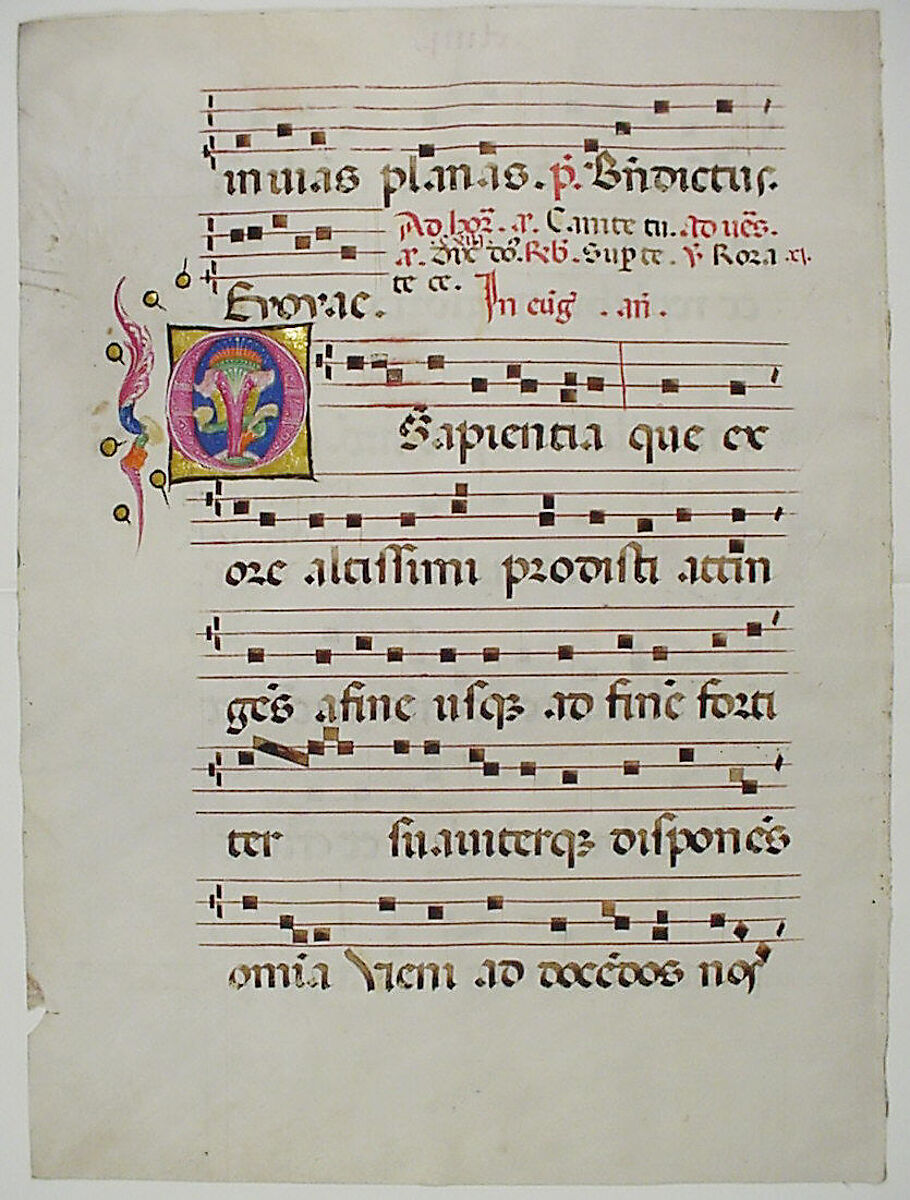 in uias planas. p̄. Bn̄dictus.
Ad hor̄. a. Canite tu. ad ues̄.
a. Dix̄ do᷒. Rēb. Sup te. ℣ Rora
te ce. In eūg. an̄.
Euouae.
O Sapientia que ex
ore altissimi prodisti attin
gēs afine usqꝫ ad finē forti
ter suauiterqꝫ disponēs
omīa Veni ad docēdos nos